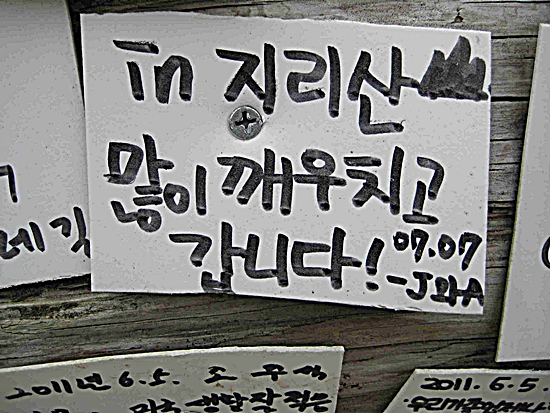 in 지리산
많이 깨우치고
갑니다!
07.07
-J와A
레킹
2011년 6.5. 조우석
2011.6.5.